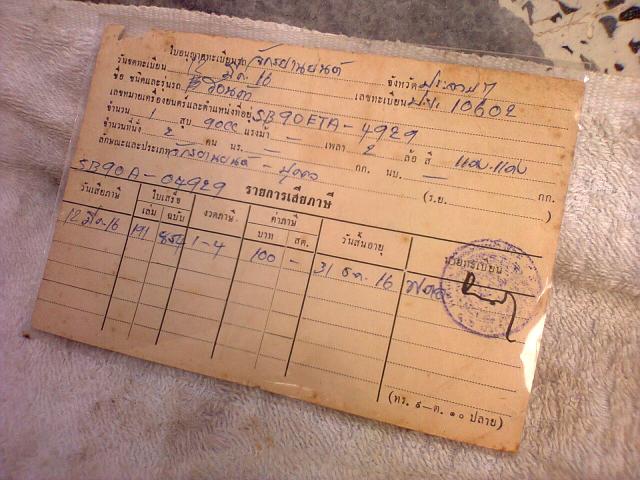 ใบอนุญาตทะเบียนรถจักรยานยนต์
วันจดทะเบียน 12 มี.ค. 16 จังหวัด
ชื่อ ชนิดและรุ่นรถ ฮอนด้า เลขทะเบียน 10602
เลขหมายเครื่องยนต์และตำแหน่งที่อยู่ SB90ETA-4929
จำนวน 1 สูบ 90cc แรงม้า — เพลา 2 ล้อ สี
จำนวนที่นั่ง 2 คน นร. — กก. นบ. — กก.
ลักษณะและประเภท จักรยานยนต์ - (ร.ย. )
SB90A-04929
รายการเสียภาษี
วันเสียภาษี ใบเสร็จ งวดภาษี ค่าภาษี วันสิ้นอายุ นายทะเบียน
เล่ม ฉบับ บาท สต.
12 มี.ค. 16 191 854 1-4 100 - 31 ธ.ค. 16
(ทร. ๕-ต. ๑๐ ปลาย)